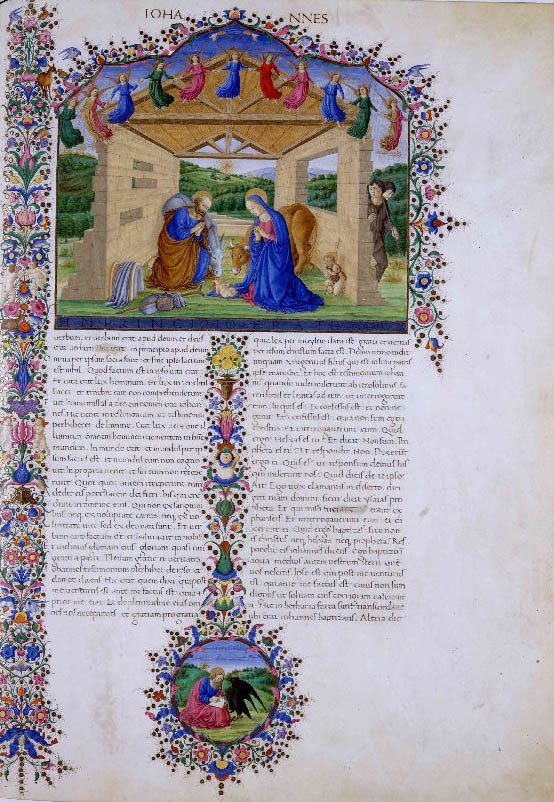 IOHA NNES
IN PRINCIPIO ERAT
uerbum et uerbum erat apud deum et deus
erat uerbum hoc erat in principio apud deum
omnia per ipsum facta sunt et sine ipso factum
est nihil. Quod factum est in ipso uita erat
Et uita erat lux hominum. Et lux in tenebris
lucet et tenebre eam non comprehenderunt
Fuit homo missus a deo cui nomen erat iohan
nes hic uenit in testimonium ut testimonium
perhiberet de lumine. Erat lux uera que il
luminat omnem hominem uenientem in hunc
mundum. In mundo erat et mundus per ip
sum factus est et mundus eum non cogno
uit. In propria uenit et sui eum non recepe
runt. Quot quot autem receperunt eum
dedit eis potestatem dei fieri his qui cre
dunt in nomine eius. Qui non ex sanguini
bus neque ex uoluntate carnis neque ex uo
luntate uiri sed ex deo nati sunt. Et uer
bum caro factum est et habitauit in nobis
Et uidimus gloriam eius gloriam quasi uni
geniti a patre plenum gratie et ueritatis
Iohannes testimonium perhibet de ipso et
clamat dicens hic erat quem dixi qui post
me uenturus est ante me factus est quia
prior me erat Et de plenitudine eius om
nes nos accepimus et gratiam pro gratia
quia lex per moysen data est gratia et ueritas
per iesum christum facta est. Deum nemo uidit
unquam unigenitus filius qui est in sinu patris
ipse enarrauit. Et hoc est testimonium iohan
nis quando miserunt iudei ab ierosolimis sa
cerdotes et leuitas ad eum ut interrogarent
eum Tu quis es Et confessus est et non ne
gauit Et confessus est quia non sum ego
christus Et interrogauerunt eum Quid
ergo Helyas es tu Et dicit Non sum Pro
pheta es tu Et respondit Non Dixerunt
ergo ei Quis es ut responsum demus his
qui miserunt nos Quid dicis de te ipso
Ait Ego uox clamantis in deserto diri
gite uiam domini sicut dixit ysaias pro
pheta Et qui missi fuerant erant ex
phariseis Et interrogauerunt eum et di
xerunt ei Quid ergo baptizas si tu non
es christus neque helyas neque propheta Res
pondit eis iohannes dicens Ego baptizo in
aqua medius autem uestrum stetit quem
uos nescitis Ipse est qui post me uenturus
est qui ante me factus est cuius non sum
dignus ut soluam eius corrigiam calceamen
ti Hec in bethania facta sunt trans iordanem
ubi erat iohannes baptizans. Altera die